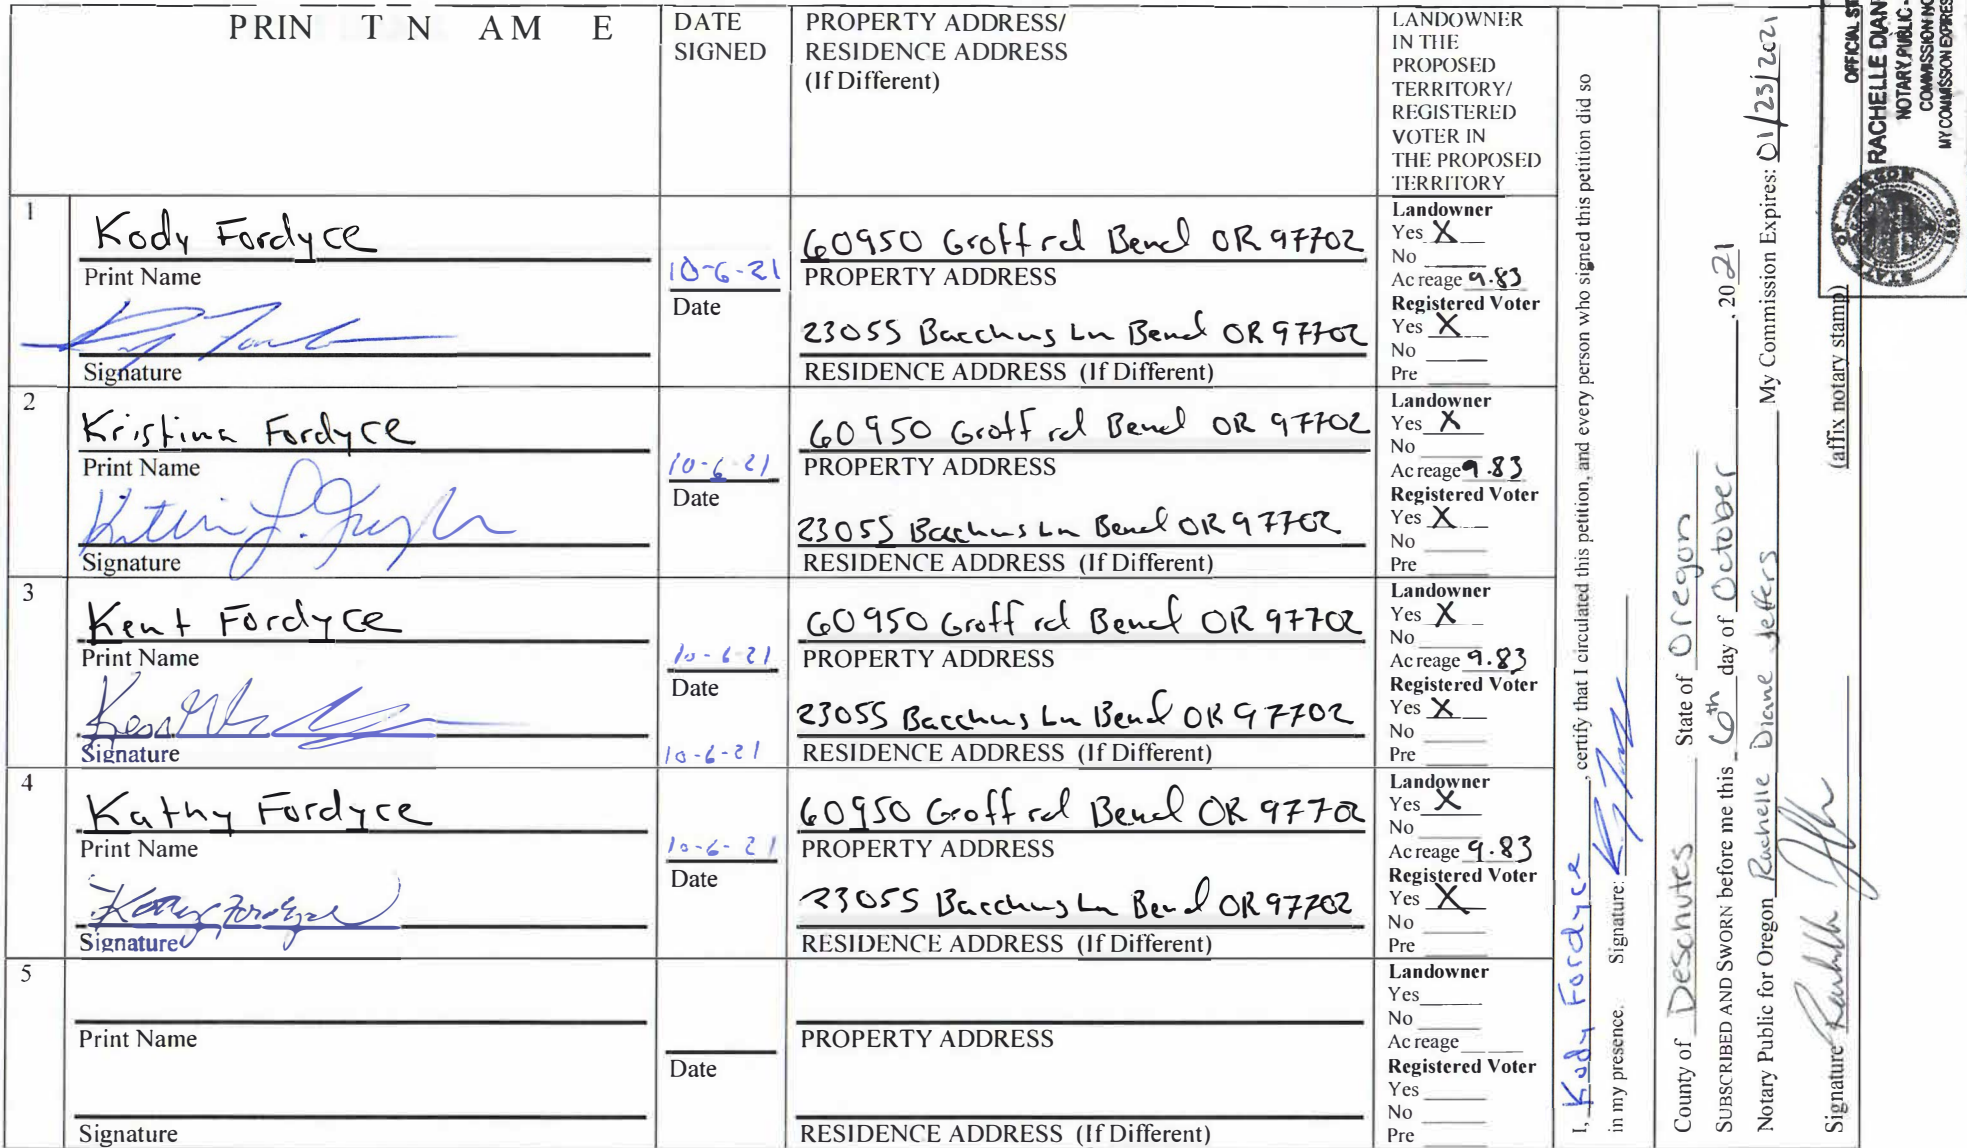 PRINT NAME
DATE SIGNED
PROPERTY ADDRESS/
RESIDENCE ADDRESS
(If Different)
LANDOWNER
IN THE
PROPOSED
TERRITORY/
REGISTERED
VOTER IN
THE PROPOSED
TERRITORY
1
Kody Fordyce
Print Name
Signature
10-6-21
Date
60950 Groff rd Bend OR 97702
PROPERTY ADDRESS
23055 Bacchus Ln Bend OR 97702
RESIDENCE ADDRESS (If Different)
Landowner
Yes X
No
Acreage 9.83
Registered Voter
Yes X
No
Pre
2
Kristina Fordyce
Print Name
Signature
10-6-21
Date
60950 Groff rd Bend OR 97702
PROPERTY ADDRESS
23055 Bacchus Ln Bend OR 97702
RESIDENCE ADDRESS (If Different)
Landowner
Yes X
No
Acreage 9.83
Registered Voter
Yes X
No
Pre
3
Kent Fordyce
Print Name
Signature
10-6-21
Date
10-6-21
60950 Groff rd Bend OR 97702
PROPERTY ADDRESS
23055 Bacchus Ln Bend OR 97702
RESIDENCE ADDRESS (If Different)
Landowner
Yes X
No
Acreage 9.83
Registered Voter
Yes X
No
Pre
4
Kathy Fordyce
Print Name
Kathy Fordyce
Signature
10-6-21
Date
60950 Groff rd Bend OR 97702
PROPERTY ADDRESS
23055 Bacchus Ln Bend OR 97702
RESIDENCE ADDRESS (If Different)
Landowner
Yes X
No
Acreage 9.83
Registered Voter
Yes X
No
Pre
5
Print Name
Signature
Date
PROPERTY ADDRESS
RESIDENCE ADDRESS (If Different)
Landowner
Yes
No
Acreage
Registered Voter
Yes
No
Pre
I, Kody Fordyce, certify that I circulated this petition, and every person who signed this petition did so
in my presence. Signature:
County of Deschutes State of Oregon
SUBSCRIBED AND SWORN before me this 6th day of October, 2021
Notary Public for Oregon Rachelle Diane Jeffers My Commission Expires: 01/23/2021
Signature (affix notary stamp)
OFFICIAL ST
RACHELLE DIAN
NOTARY PUBLIC -
COMMISSION NO
MY COMMISSION EXPIRES
STATE OF OREGON
1859